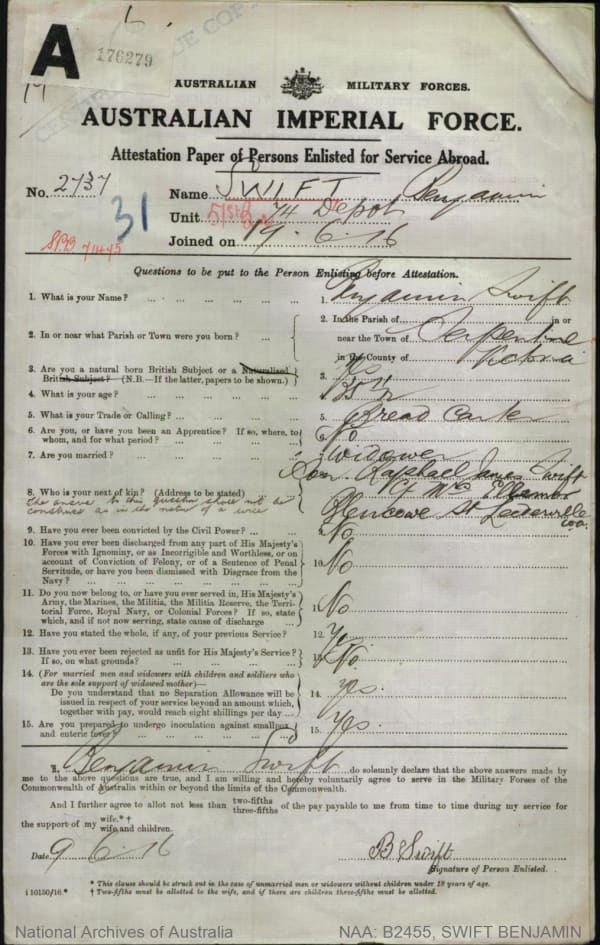 A
176279
AUSTRALIAN MILITARY FORCES.
AUSTRALIAN IMPERIAL FORCE.
Attestation Paper of Persons Enlisted for Service Abroad.
No. 2737
Name SWIFT Benjamin
31
Unit 74 Depot
Joined on 19.6.16
Questions to be put to the Person Enlisting before Attestation.
1. What is your Name? 1. Benjamin Swift
2. In or near what Parish or Town were you born? 2. In the Parish of in or
near the Town of
in the County of Victoria
3. Are you a natural born British Subject or a Naturalised
British Subject? (N.B.—If the latter, papers to be shown.) 3. Yes
4. What is your age? 4.
5. What is your Trade or Calling? 5. Bread Carter
6. Are you, or have you been an Apprentice? If so, where, to
whom, and for what period? 6. No
7. Are you married? Widower
Son Raphael James Swift
8. Who is your next of kin? (Address to be stated)
The answer to this question shall not be
construed as in the nature of a will
Glencowe St Leederville
WA
9. Have you ever been convicted by the Civil Power? 9. No
10. Have you ever been discharged from any part of His Majesty's
Forces with Ignominy, or as Incorrigible and Worthless, or on
account of Conviction of Felony, or of a Sentence of Penal
Servitude, or have you been dismissed with Disgrace from the
Navy? 10. No
11. Do you now belong to, or have you ever served in, His Majesty's
Army, the Marines, the Militia, the Militia Reserve, the Terri-
torial Force, Royal Navy, or Colonial Forces? If so, state
which, and if not now serving, state cause of discharge 11. No
12. Have you stated the whole, if any, of your previous Service? 12.
13. Have you ever been rejected as unfit for His Majesty's Service?
If so, on what grounds? 13. No
14. (For married men and widowers with children and soldiers who
are the sole support of widowed mother)—
Do you understand that no Separation Allowance will be
issued in respect of your service beyond an amount which,
together with pay, would reach eight shillings per day 14. yes.
15. Are you prepared to undergo inoculation against smallpox
and enteric fever? 15. Yes.
I, Benjamin Swift do solemnly declare that the above answers made by
me to the above questions are true, and I am willing and hereby voluntarily agree to serve in the Military Forces of the
Commonwealth of Australia within or beyond the limits of the Commonwealth.
And I further agree to allot not less than two-fifths three-fifths of the pay payable to me from time to time during my service for
the support of my wife.*† wife and children.
Date 9 6 16
B Swift
Signature of Person Enlisted.
* This clause should be struck out in the case of unmarried men or widowers without children under 18 years of age.
† Two-fifths must be allotted to the wife, and if there are children three-fifths must be allotted.
C10150/16.*
National Archives of Australia
NAA: B2455, SWIFT BENJAMIN